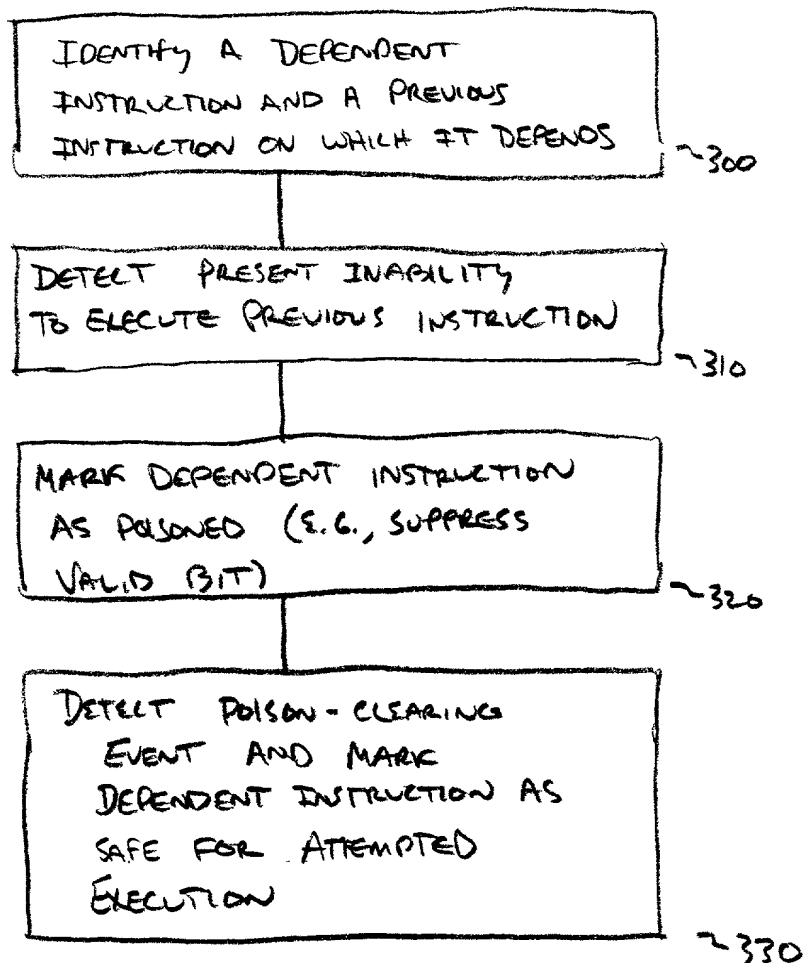 IDENTIFY A DEPENDENT
INSTRUCTION AND A PREVIOUS
INSTRUCTION ON WHICH IT DEPENDS
~300
DETECT PRESENT INABILITY
TO EXECUTE PREVIOUS INSTRUCTION
~310
MARK DEPENDENT INSTRUCTION
AS POISONED (E.G., SUPPRESS
VALID BIT)
~320
DETECT POISON-CLEARING
EVENT AND MARK
DEPENDENT INSTRUCTION AS
SAFE FOR ATTEMPTED
EXECUTION
~330